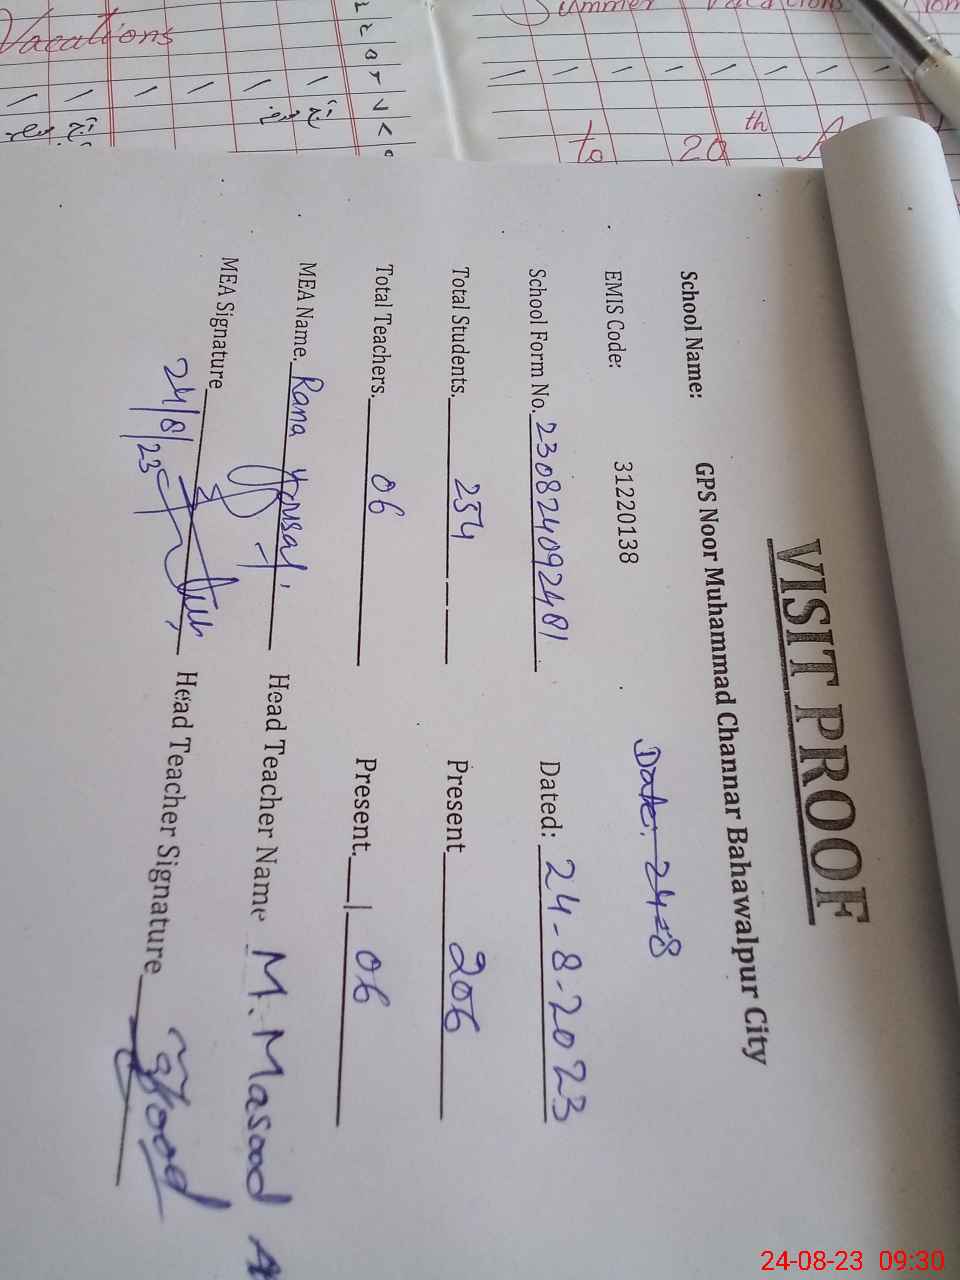 Vacations
Summer Vacations
to 20th
VISIT PROOF
School Name: GPS Noor Muhammad Channar Bahawalpur City
EMIS Code: 31220138 Date: 24-8
School Form No. 230824092481 Dated: 24-8-2023
Total Students. 254 Present 206
Total Teachers. 06 Present. 06
MEA Name. Rana Head Teacher Name M. Masood A
MEA Signature Head Teacher Signature
24/8/23
24-08-23 09:30